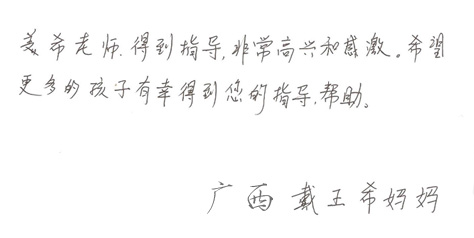 姜希老师,得到指导,非常高兴和感激。希望
更多的孩子有幸得到您的指导,帮助。
广西 戴王希妈妈